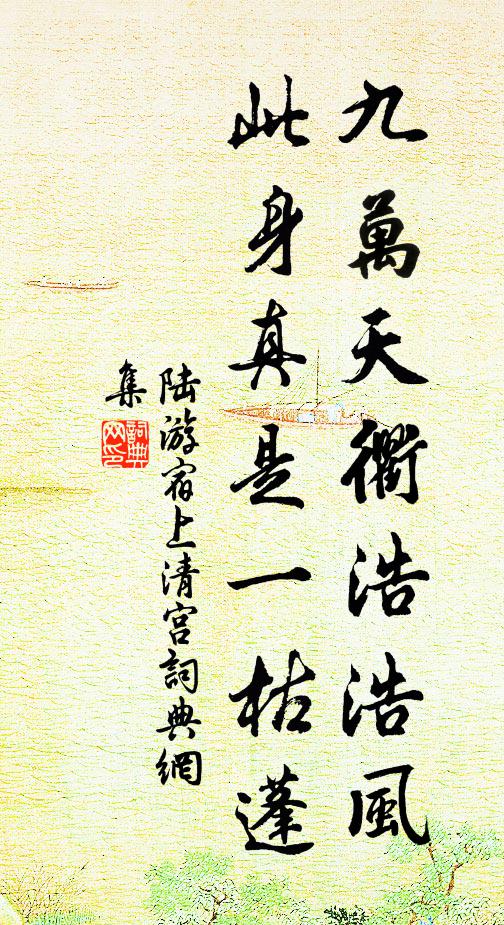 九萬天衢浩浩風
此身真是一枯蓬
陸游宿上清宮詞典網
集
詞典網印